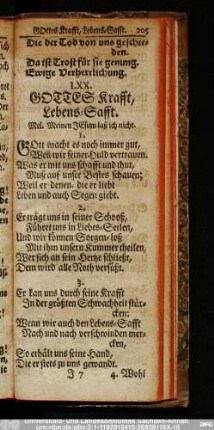 GOttes Krafft, Lebens-Safft. 205
Die der Tod von uns geschie-
den.
Da ist Trost für sie genung.
Ewige Verherrlichung.
LXX.
GOTTES Krafft,
Lebens-Safft.
Mel. Meinen JEsum laß ich nicht.
1.
GOtt macht es noch immer gut,
Wenn wir seiner Huld vertrauen.
Was er mit uns schafft und thut,
Muß auf unser Bestes schauen;
Weil er denen, die er liebt
Leben und auch Segen giebt.
2.
Er trägt uns in seiner Schooß,
Führet uns in Liebes-Seilen,
Und wir können Sorgen-loß
Mit ihm unsern Kummer theilen,
Wer sich an sein Hertze schließt,
Dem wird alle Noth versüßt.
3.
Er kan uns durch seine Krafft
In der größten Schwachheit stär-
cken:
Wenn wir auch den Lebens-Safft
Nach und nach verschwinden mer-
cken,
So erhält uns seine Hand,
Die er stets zu uns gewandt.
J 7 4. Wohl